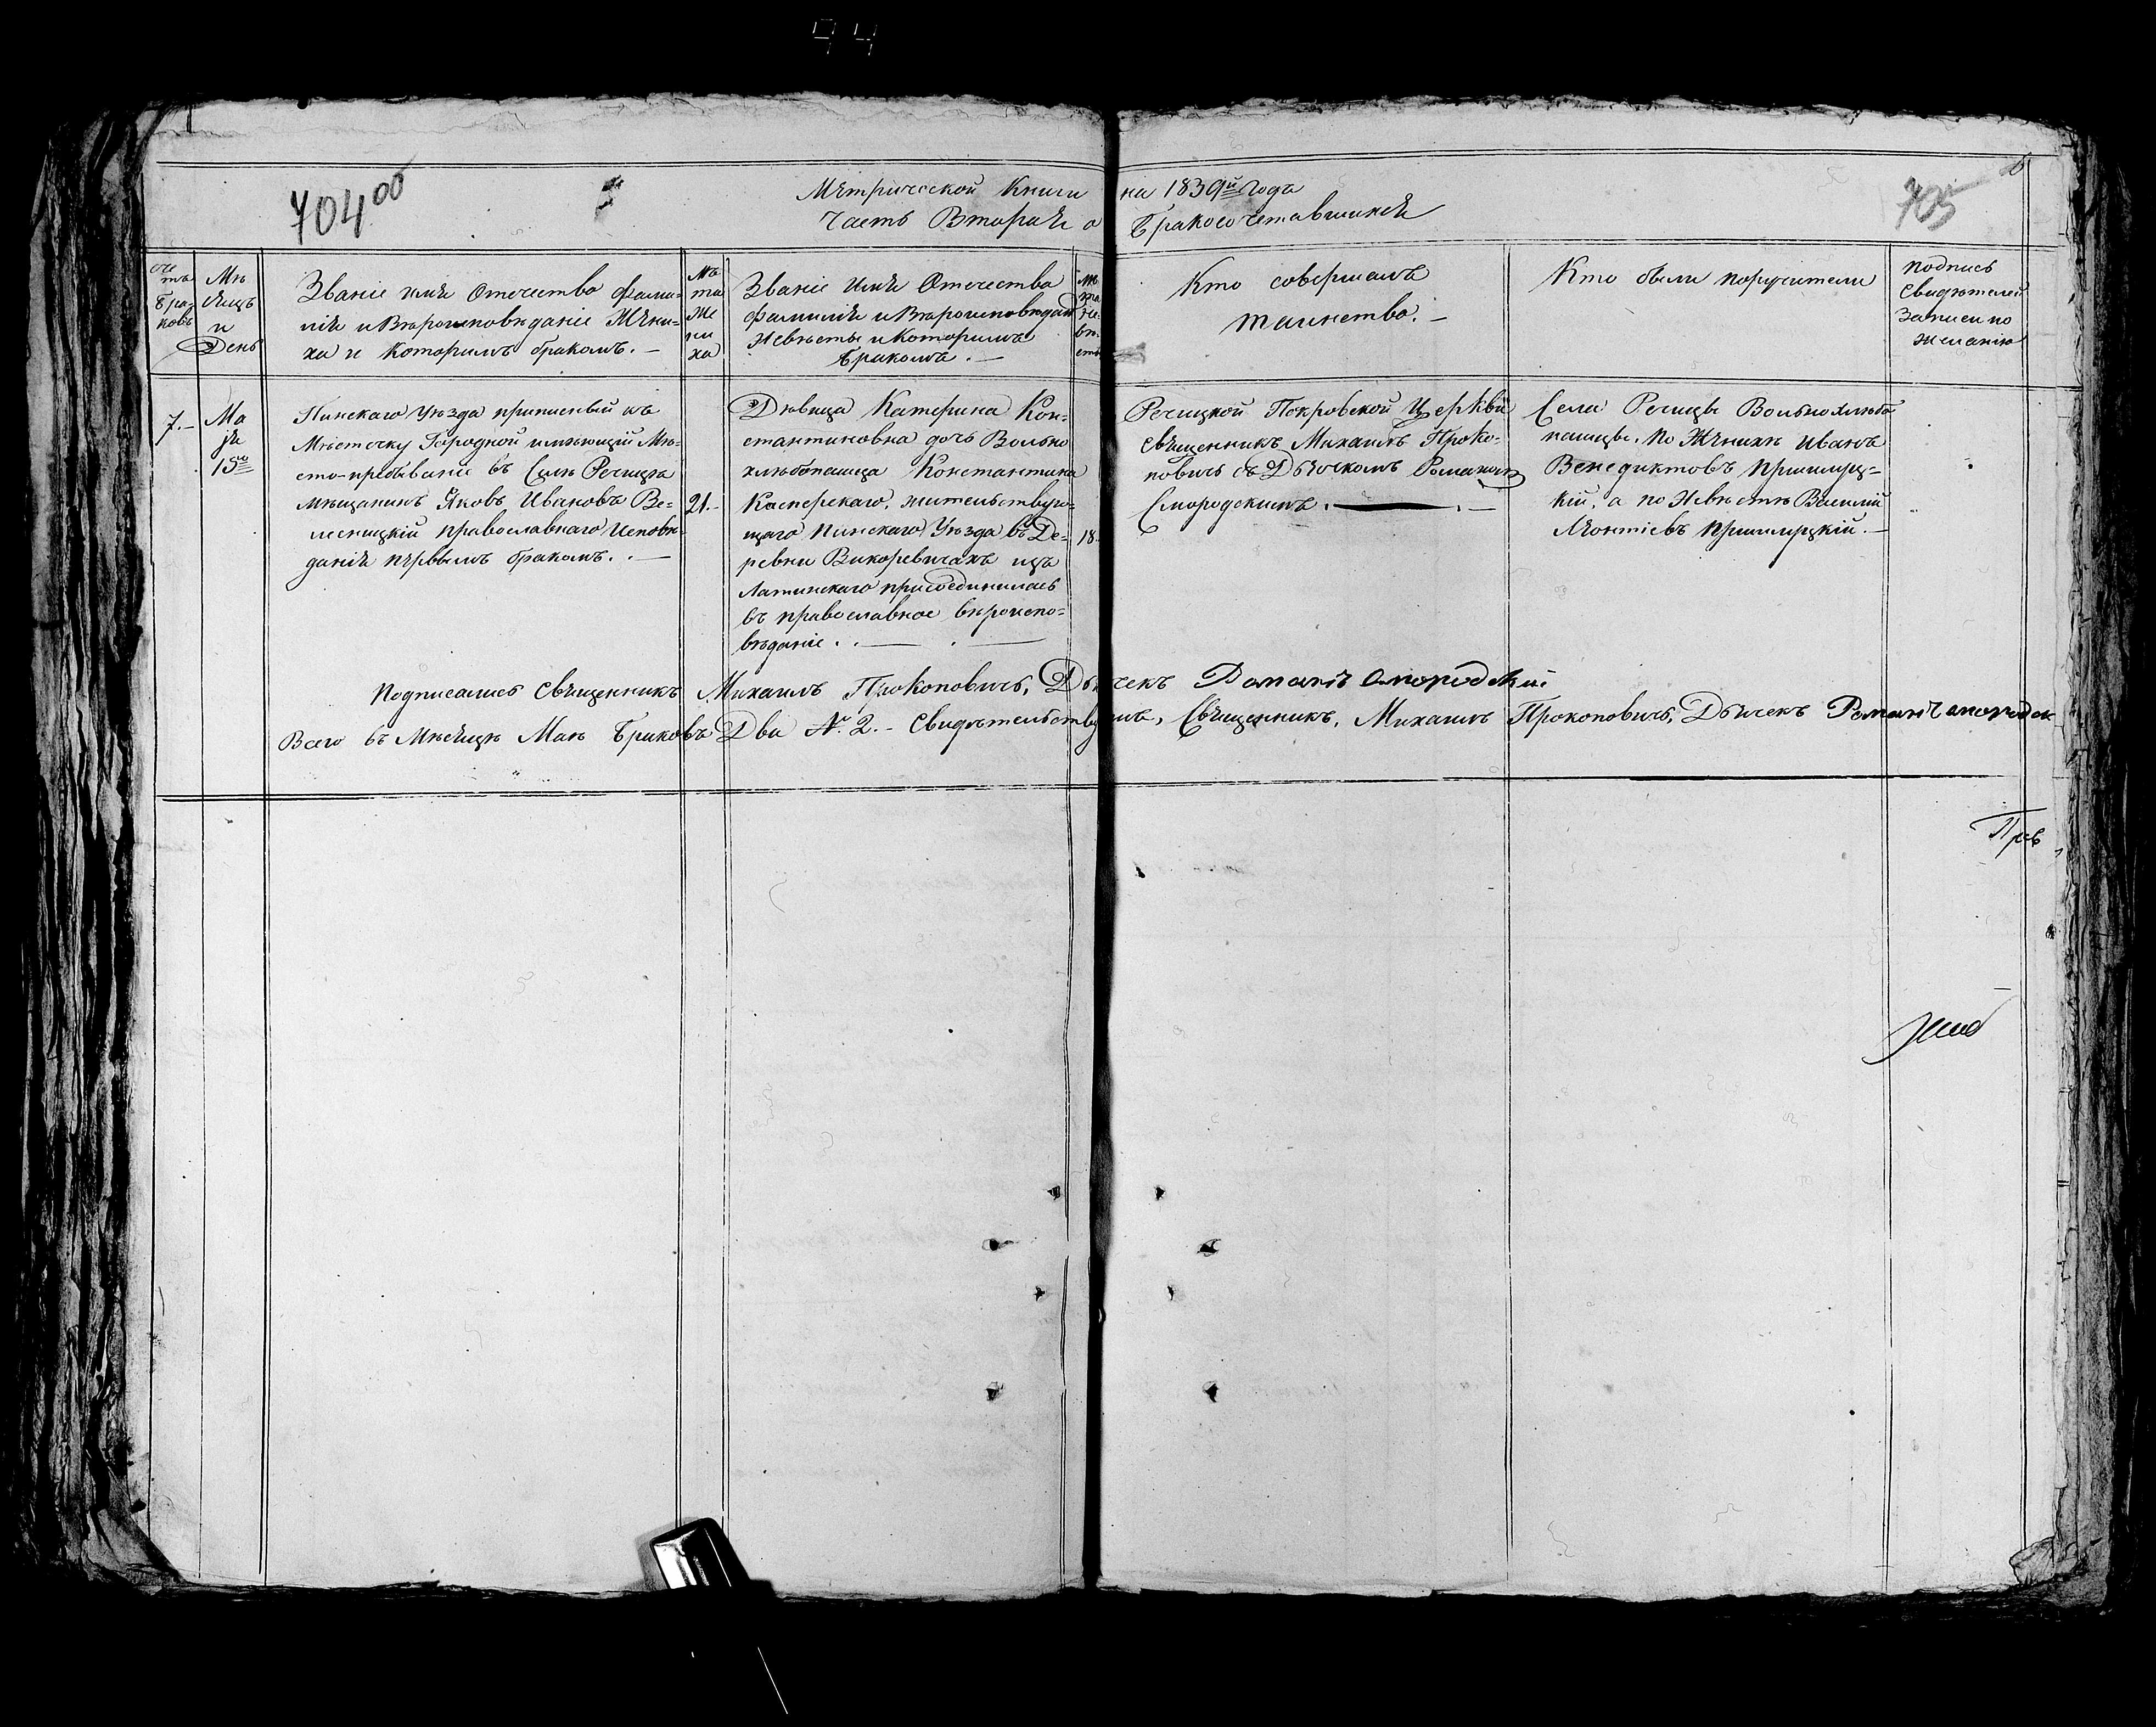 704 об
705
Метрической Книги на 1839й Года
Часть Вторая о Бракосочетавшихся
Сче
тъ
бра-
ковъ
Мѣ
сяцъ
и
День
Званіе имя Отечество фами-
лія и Вѣроисповѣданіе Жени-
ха и Которимъ бракомъ. —
Лѣ
та
Же
ни
ха
Званіе имя Отечество
фамилія и Вѣроисповѣдан
Невѣсты и Которимъ
Бракомъ. —
Лѣ
та
не-
вѣ-
сты
Кто совершалъ
таинство. —
Кто были поручители
Подпись
Свидѣтелей
Записи по
желанію
7. —
Ма
я
15го
Пинскаго Уѣзда приписный къ
Мѣстечку Городной имѣющій мѣ-
сто-пребываніе въ Селѣ Речицѣ
мѣщанинъ Яковъ Ивановъ Ве-
лесницкій православнаго Исповѣ-
данія первымъ бракомъ. . —
21. -
Дѣвица Катерина Кон-
стантиновна дочь Вольно
хлѣбопашца Константина
Касперскаго, жительствую-
щаго Пинскаго Уѣзда въ Де-
ревни Викоревичахъ изъ
Латинскаго присоединилась
въ православное вѣроиспо-
вѣданіе. . —
18.
Речицкой Покровской Церкви
Священникъ Михаилъ Проко-
повичъ съ Дьячкомъ Романомъ
Смородскимъ. —
Села Речицы Вольнохлѣбо
пашцы. По Женихѣ Иванъ
Венедиктовъ Пришлуц-
кій, а по Невѣстѣ Василій
Леонтіевъ Пришлуцкій. —
Подписались Священникъ Михаилъ Прокоповичъ, Дьячекъ Романъ Смородскій
Всего въ Мѣсяцѣ Маѣ Браковъ Два № 2. - Свидѣтельствуемъ, Священникъ, Михаилъ Прокоповичъ, Дьячекъ Романъ Смородск